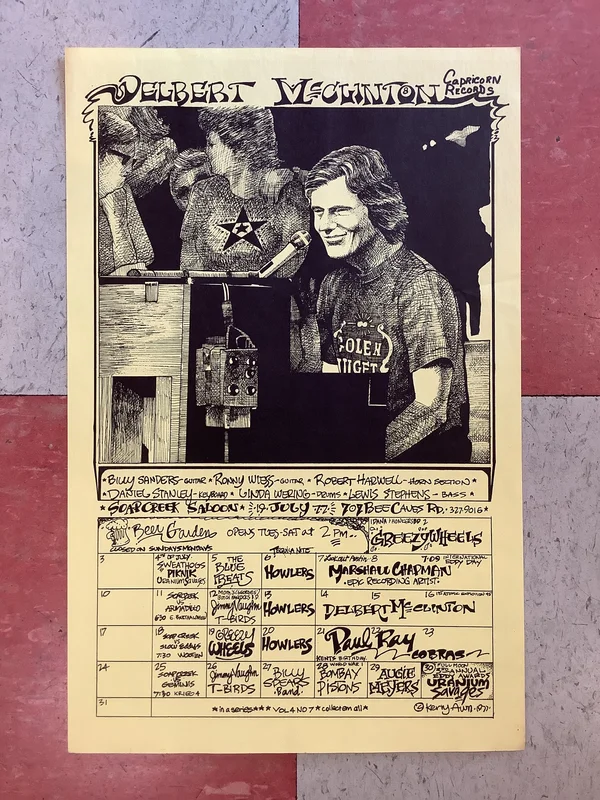 DELBERT McCLINTON
CAPRICORN RECORDS
GOLEN
NUGET
• BILLY SANDERS - GUITAR • RONNY WIESS - GUITAR • ROBERT HARWELL - HORN SECTION •
• DANIEL STANLEY - KEYBOARD • LINDA WERING - DRUMS • LEWIS STEPHENS - BASS •
SOAP CREEK SALOON JULY 77 707 BEE CAVES RD. 327-9016
Beer Garden OPENS TUES-SAT at 2 P.M.
CLOSED ON SUNDAYS MONDAYS
1 2
GREEZYWHEELS
3
4TH OF JULY
SWEATHOGS
PIKNIK
URANIUM SAVAGES
5 THE
BLUE
BEATS
6
HOWLERS
7 8
MARSHALL CHAPMAN
• EPIC RECORDING ARTIST •
9 INTERNATIONAL
EDDY DAY
10
11 SOAPCREEK
VS
ARMADILLO
12
Jimmy Vaughn
T-BIRDS
13
HOWLERS
14 15 16
DELBERT McCLINTON
17
18
SOAP CREEK
VS
7:30
19 GREEZY
WHEELS
20
HOWLERS
21 22 23
Paul Ray
KENTS BIRTHDAY
COBRAS
24
25
SOAP CREEK
VS
GEMINIS
7:30 KRIEG 4
26
Jimmy Vaughn
T-BIRDS
27
BILLY
SPEARS
Band
28 WORLD WAR I
BOMBAY
PISTONS
29
AUGIE
MEYERS
30 FULL MOON
ANNUAL
EDDY AWARDS
URANIUM
SAVAGES
31
★ in a series ★★★ VOL 4 NO 7 ★ collect em all ★
© Kerry Awn · 1977 ·